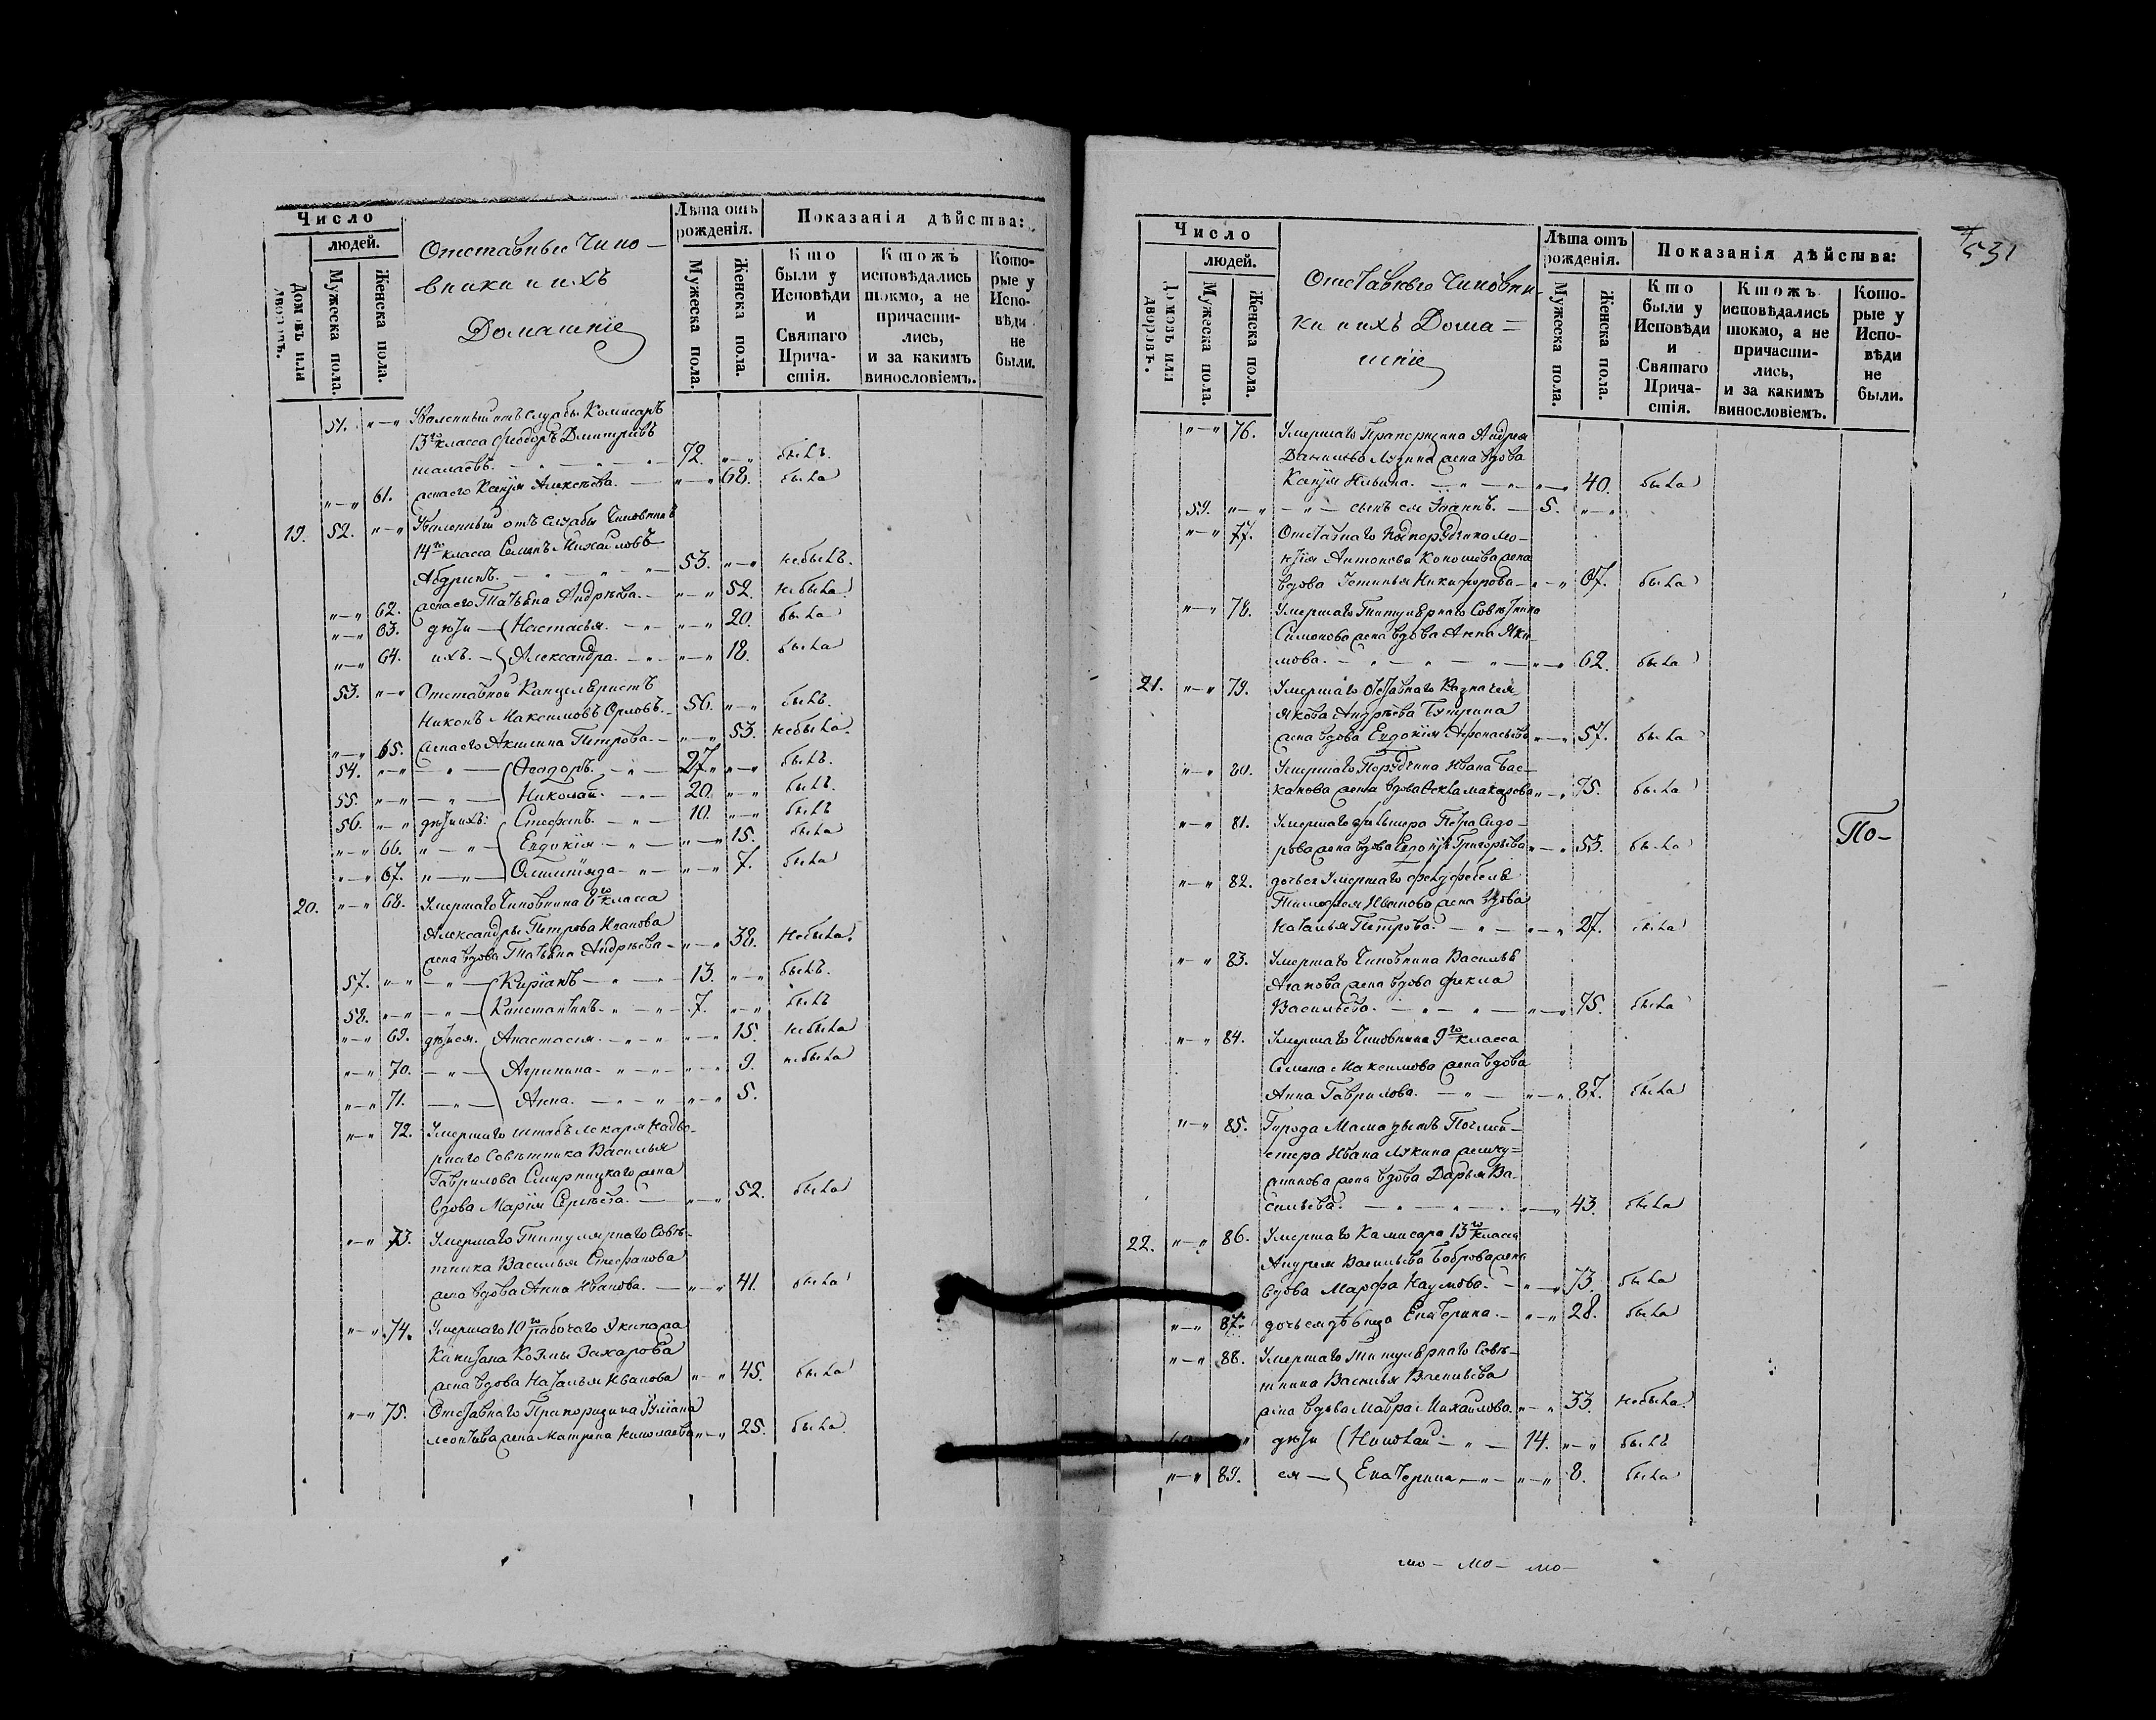 Число
людей.
Домовъ или дворовъ.
Мужеска пола.
Женска пола.
Отставные Чино-
вники и ихъ
Домашніе
Лѣта отъ рожденія.
Мужеска пола.
Женска пола.
Показанія дѣйства:
Кто были у Исповѣди и Святаго Прича-стія.
Ктожъ исповѣдались токмо, а не причасти-лись, и за какимъ винословіемъ.
Кото-рые у Испо-вѣди не были.
51. "—" Уволенный отъ службы Комисаръ
13го класса Феодоръ Дмитріевъ
72. "—" былъ.
"—" 61. жена его Ксенія Алексѣева. — "—" 68. была
19. 52. "—" Уволенный отъ службы Чиновникъ
14го класса Семенъ Михайловъ
53. "—" небылъ.
"—" 62. жена его Татьяна Андрѣева. — "—" 52. небыла
"—" 63. дѣти — Настасья. — "—" 20. была
"—" 64. ихъ. — Александра. — "—" 18. была
53. "—" Отставной Канцеляристъ
Никонъ Максимовъ Орловъ. 56. "—" былъ.
"—" 65. жена его Акилина Петрова. — "—" 53. небыла.
54. "—" — " — Феодоръ. — " — 27. "—" былъ.
55. "—" — " — Николай. — " — 20. "—" былъ.
56. "—" дѣти ихъ: Стефанъ. — " — 10. "—" былъ
"—" 66. " — " — Евдокія — " — "—" 15. была
"—" 67. " — " — Олимпіяда — " — "—" 7. была
20. "—" 68. Умершаго Чиновника 8го класса
Александры Петрова
жена вдова Татьяна Андрѣева — "—" 38. Небыла.
57. "—" — " — Киріакъ — " — 13. "—" былъ.
58. "—" — " — Константинъ. — " — 7. "—" былъ
"—" 69. дѣти ея. Анастасія. — " — "—" 15. небыла
"—" 70. — " — Агрипина — " — "—" 9. небыла
"—" 71. — " — Анна. — " — "—" 5.
"—" 72. Умершаго штабъ лекаря Надво-
рнаго Совѣтника Василья
Гаврилова Смирницкаго жена
вдова Марія Сергѣева. — "—" 52. была
"—" 73. Умершаго Титулярнаго Совѣ-
тника Василья Стефанова
жена вдова Анна Иванова. — "—" 41. была
"—" 74. Умершаго 10го рабочаго Экипажа
Капитана Козмы Захарова
жена вдова Наталья Иванова "—" 45. была
"—" 75. Отставнаго Прапорщика Іуліана
Леонтьева жена Матрена Николаева "—" 25. была
531
Число
людей.
Домовъ или дворовъ.
Мужеска пола.
Женска пола
Отставные Чиновни-
ки и ихъ Дома=
шніе
Лѣта отъ рожденія.
Мужеска пола.
Женска пола.
Показанія дѣйства:
Кто были у Исповѣди и Святаго Прича-стія.
Ктожъ исповѣдались токмо, а не причасти-лись, и за какимъ винословіемъ.
Кото-рые у Испо-вѣди не были.
"—" 76. Умершаго Прапорщика Андрея
жена вдова
Ксенія Ильина. — " — "—" 40. была
59. "—" — " — сынъ ея Іоаннъ. — 5. "—"
"—" 77. Отставнаго Подпорутчика
Антонова жена
вдова Устинья Никифорова — "—" 67. была
"—" 78. Умершаго Титулярнаго Совѣтника
Симонова жена вдова Анна Яки-
мова. — " — " — "—" 62. была
21. "—" 79. Умершаго отставнаго Казначея
Якова Андрѣева
жена вдова Евдокія Афонасьева "—" 57. была
"—" 80. Умершаго Порутчика Ивана Бас-
канова жена вдова Фекла Макарова "—" 75. была
"—" 81. Умершаго Петра Сидо-
рова жена вдова Григорьева "—" 53. была
"—" 82. дочь ея Умершаго фелдфебеля
Тимофея Иванова жена вдова
Наталья Петрова. — " — "—" 27. была
"—" 83. Умершаго Чиновника Василья
Агапова жена вдова Фекла
Васильева. — " — " — "—" 75. была
"—" 84. Умершаго Чиновника 9го класса
Семена Максимова жена вдова
Анна Гаврилова. — " — "—" 87. была
"—" 85. Города Мамадышъ Почтмей-
стера Ивана
жена вдова Дарья Ва-
сильева. — " — " — "—" 43. была
22. "—" 86. Умершаго Камисара 13го класса
Андрея Васильева Боброва жена
вдова Марфа Наумова. — "—" 73. была
"—" 87. дочь ея дѣвица Екатерина. — "—" 28. была
"—" 88. Умершаго Титулярнаго Совѣ-
тника Василья Васильева
жена вдова Мавра Михайлова. "—" 33. небыла.
дѣти Николай — " — 14. "—" былъ
"—" 89. ея — Екатерина — " — "—" 8. была
По-
мо — мо — мо —